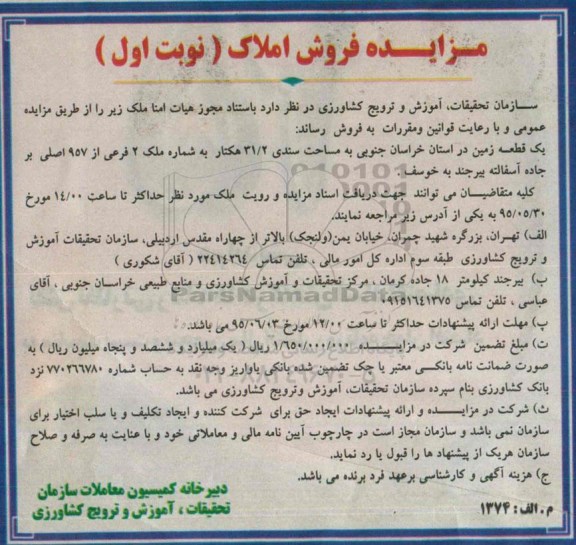 مـزایـــده فروش املاک ( نوبت اول )
ســازمان تحقیقات، آموزش و ترویج کشاورزی در نظر دارد باستناد مجوز هیات امنا ملک زیر را از طریق مزایده
عمومی و با رعایت قوانین ومقررات به فروش رساند:
یک قطعـه زمین در استان خراسان جنوبی به مساحت سندی ۳۱/۲ هکتار به شماره ملک ۲ فرعی از ۹۵۷ اصلی بر
جاده آسفالته بیرجند به خوسف .
کلیه متقاضیــان می توانند جهت دریافت اسناد مزایده و رویت ملک مورد نظر حداکثر تا ساعت ۱۴/۰۰ مورخ
۹۵/۰۵/۳۰ به یکی از آدرس زیر مراجعه نمایند.
الف) تهـران، بزرگره شهید چمران، خیابان یمن(ولنجک) بالاتر از چهاراه مقدس اردبیلی، سازمان تحقیقات آموزش
و ترویج کشاورزی طبقه سوم اداره کل امور مالی ، تلفن تماس ۲۲۴۱۴۲۶۴ ( آقای شکوری )
ب) بیرجند کیلومتر ۱۸ جاده کرمان ، مرکز تحقیقات و آموزش کشاورزی و منابع طبیعی خراسان جنوبی ، آقای
عباسی ، تلفن تماس ۰۹۱۵۱۶۴۱۳۷۵
پ) مهلت ارائه پیشنهادات حداکثر تا ساعت ۱۲/۰۰ مورخ ۹۵/۰۶/۰۳ می باشد.
ت) مبلغ تضمین شرکت در مزایـــده ۱/۶۵۰/۰۰۰/۰۰۰ ریال ( یک میلیارد و ششصد و پنجاه میلیون ریال ) به
صورت ضمانت نامه بانکــی معتبر یا چک تضمین شده بانکی یاواریز وجه نقد به حساب شماره ۷۷۰۲۶۶۷۸۰ نزد
بانک کشاورزی بنام سپرده سازمان تحقیقات، آموزش وترویج کشاورزی می باشد.
ث) شرکت در مزایــــده و ارائه پیشنهادات ایجاد حق برای شرکت کننده و ایجاد تکلیف و یا سلب اختیار برای
سازمان نمی باشد و سازمان مجاز است در چارچوب آیین نامه مالی و معاملاتی خود و با عنایت به صرفه و صلاح
سازمان هریک از پیشنهاد ها را قبول یا رد نماید.
ج) هزینه آگهی و کارشناسی برعهد فرد برنده می باشد.
دبیرخانه کمیسیون معاملات سازمان
تحقیقات ، آموزش و ترویج کشاورزی
م.الف: ۱۳۷۴
ParsNamadData